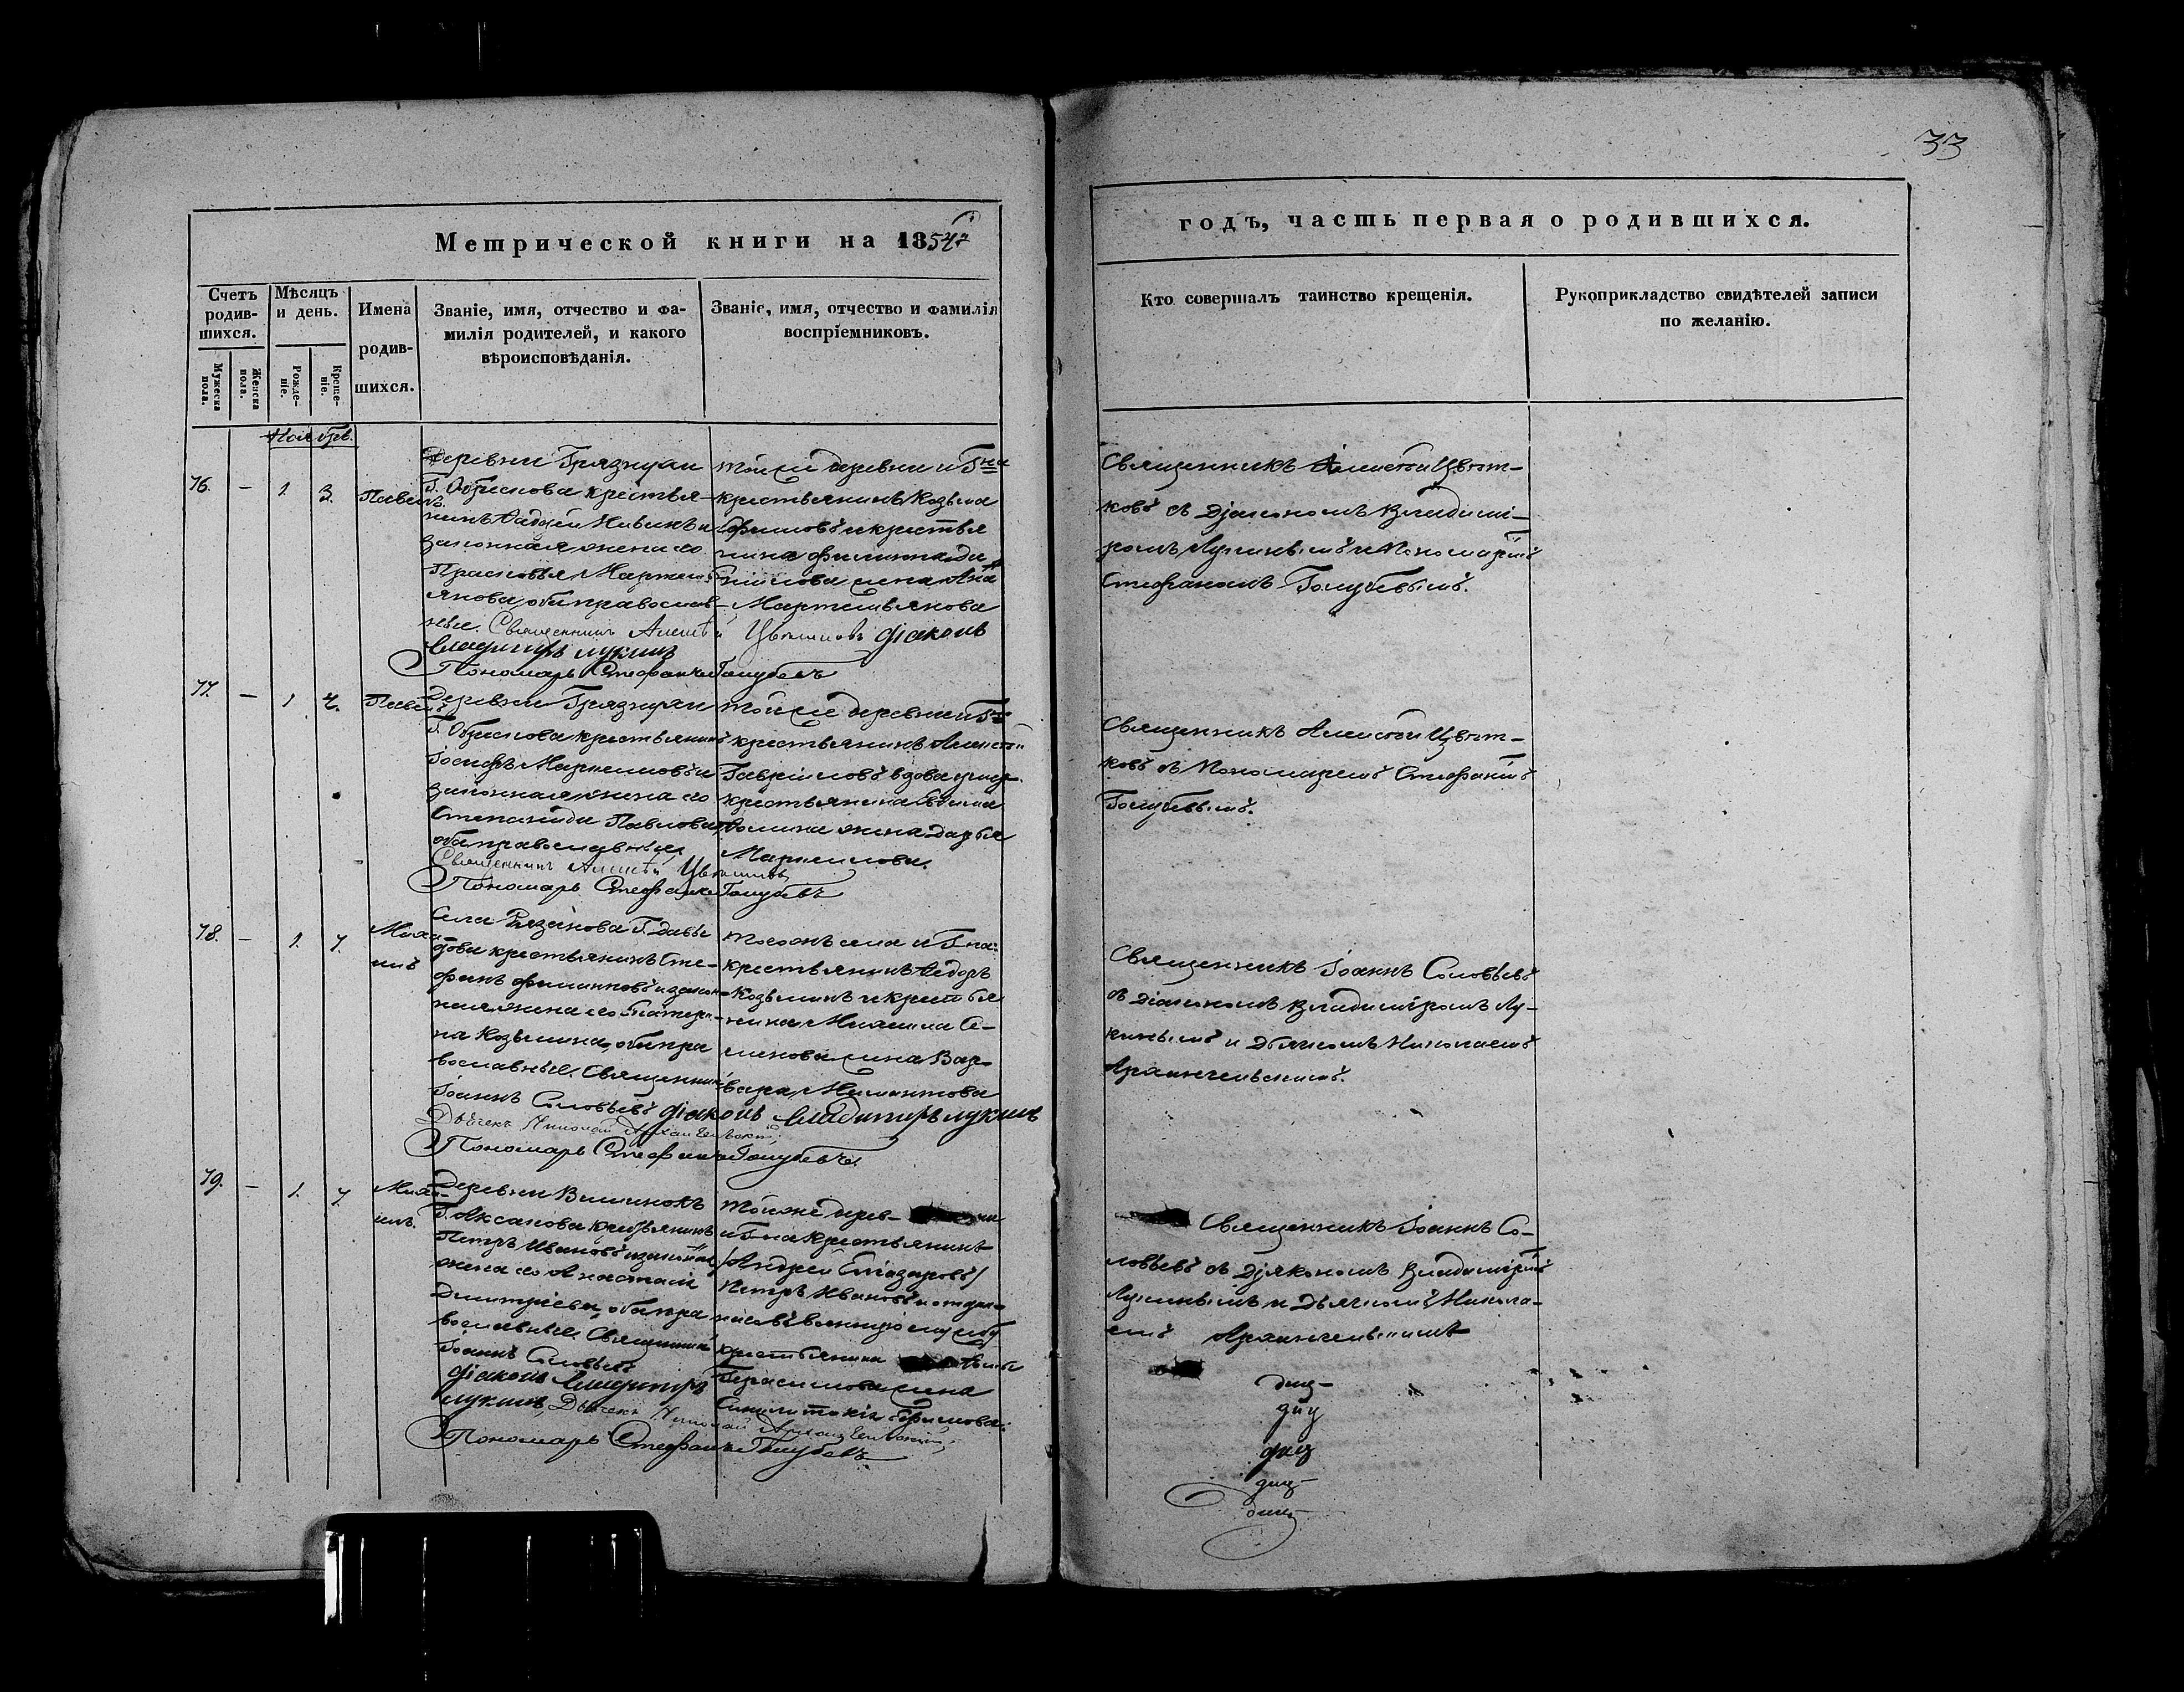 33
Метрической книги на 1854й
годъ, часть первая о родившихся.
Счетъ родив-шихся.
Мѣсяцъ и день.
Имена родив-шихся.
Званіе, имя, отчество и фа-
милія родителей, и какого
вѣроисповѣданія.
Званіе, имя, отчество и фамилія
воспріемниковъ.
Кто совершалъ таинство крещенія.
Рукоприкладство свидѣтелей записи
по желанію.
Мужеска пола.
Женска пола.
Рожде-ніе.
Креще-ніе.
Ноябрь.
76. — 1. 3. Павелъ
Деревни Грязнухи
Г. Обрескова крестья-
нинъ Фаддей Никинъ и
законная жена его
Прасковья Мартемь
янова, оба православ-
ные. Священникъ Алексѣй Цвѣтковъ Діаконъ
Владиміръ Лукинъ
Пономарь Стефанъ Голубевъ
тойже деревни и Гна
крестьянинъ Козьма
Ефимовъ и крестья
нина Филиппа Да
ниилова жена Анна
Мартемьянова
Священникъ Алексѣй Цвѣт-
ковъ съ Діакономъ Владимі-
ромъ Лукинымъ и Пономаремъ
Стефаномъ Голубевымъ.
77. — 1. 4. Павелъ
Деревни Грязнухи
Г. Обрескова крестьянинъ
Іосифъ Маркеловъ и
законная жена его
Степанида Павлова,
оба православные,
Священникъ Алексѣй Цвѣтковъ
Пономарь Стефанъ Голубевъ
тойже деревни и Гна
крестьянинъ Алексѣй
Гавріиловъ и вдова умер.
крестьянина Евдокима
жена Дарья
Маркелова.
Священникъ Алексѣй Цвѣт-
ковъ съ Пономаремъ Стефаномъ
Голубевымъ.
78. — 1. 7. Миха
илъ
Села Рязанова Г. Давы
дова крестьянинъ Сте-
фанъ Филипповъ и закон-
ная жена его Екатери-
на Козьмина, оба пра
вославные. Священникъ
Іоаннъ Соловьевъ Діаконъ Владиміръ Лукинъ
Дьячекъ Николай Архангельскій
Пономарь Стефанъ Голубевъ.
тогожъ села и Гна
крестьянинъ Федоръ
Козьминъ и крестья
нина Михаила Се-
менова жена Вар-
вара Мамонтова
Священникъ Іоаннъ Соловьевъ
съ Діакономъ Владиміромъ Лу-
кинымъ и Дьячкомъ Николаемъ
Архангельскимъ.
79. — 1. 7. Миха-
илъ.
Деревни Вишинокъ
Г. Аксакова крестьянинъ
Петръ Ивановъ и законная
жена его Анастасія
Димитріева, оба пра
вославные. Священникъ
Іоаннъ Соловьевъ
Діаконъ Владиміръ
Лукинъ, Дьячекъ Николай Архангельскій
Пономарь Стефанъ Голубевъ
тойже дерев-ни
и Гна крестьянинъ
/Андрей Елизаровъ/
Петръ Ивановъ и отдан
наго въ военную службу
крестьянина
Герасимова жена
Ефимова.
Священникъ Іоаннъ Со-
ловьевъ съ Діякономъ Владиміромъ
Лукинымъ и Дьячкомъ Никола-
емъ Архангельскимъ